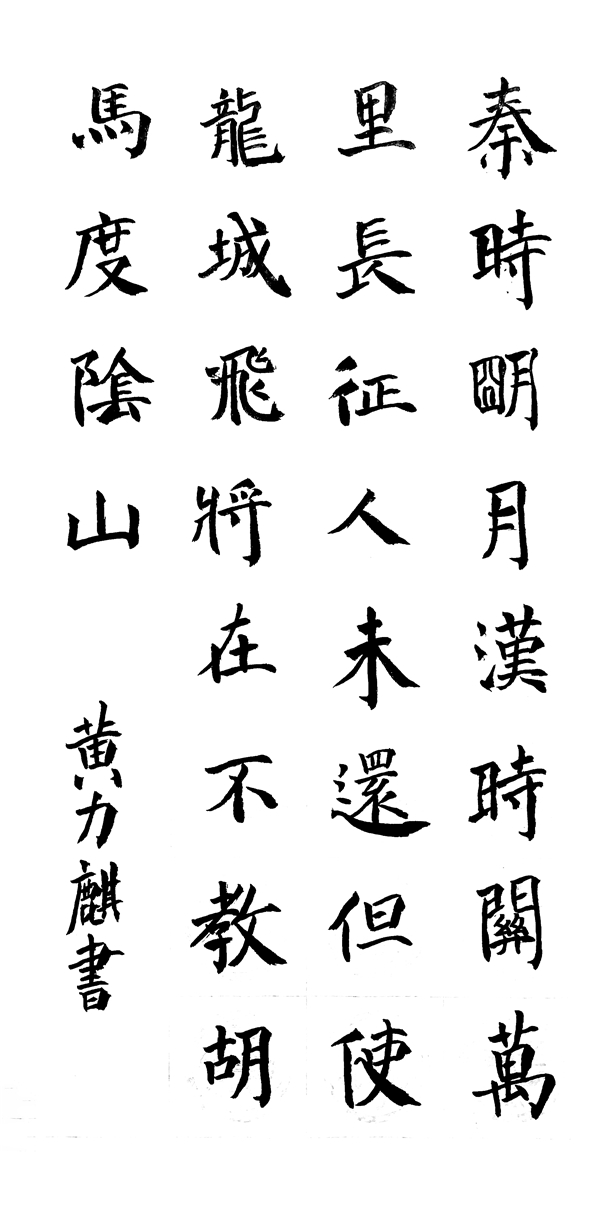 秦時朙月漢時關萬
里長征人未還但使
龍城飛將在不教胡
馬度陰山
黄力麒書